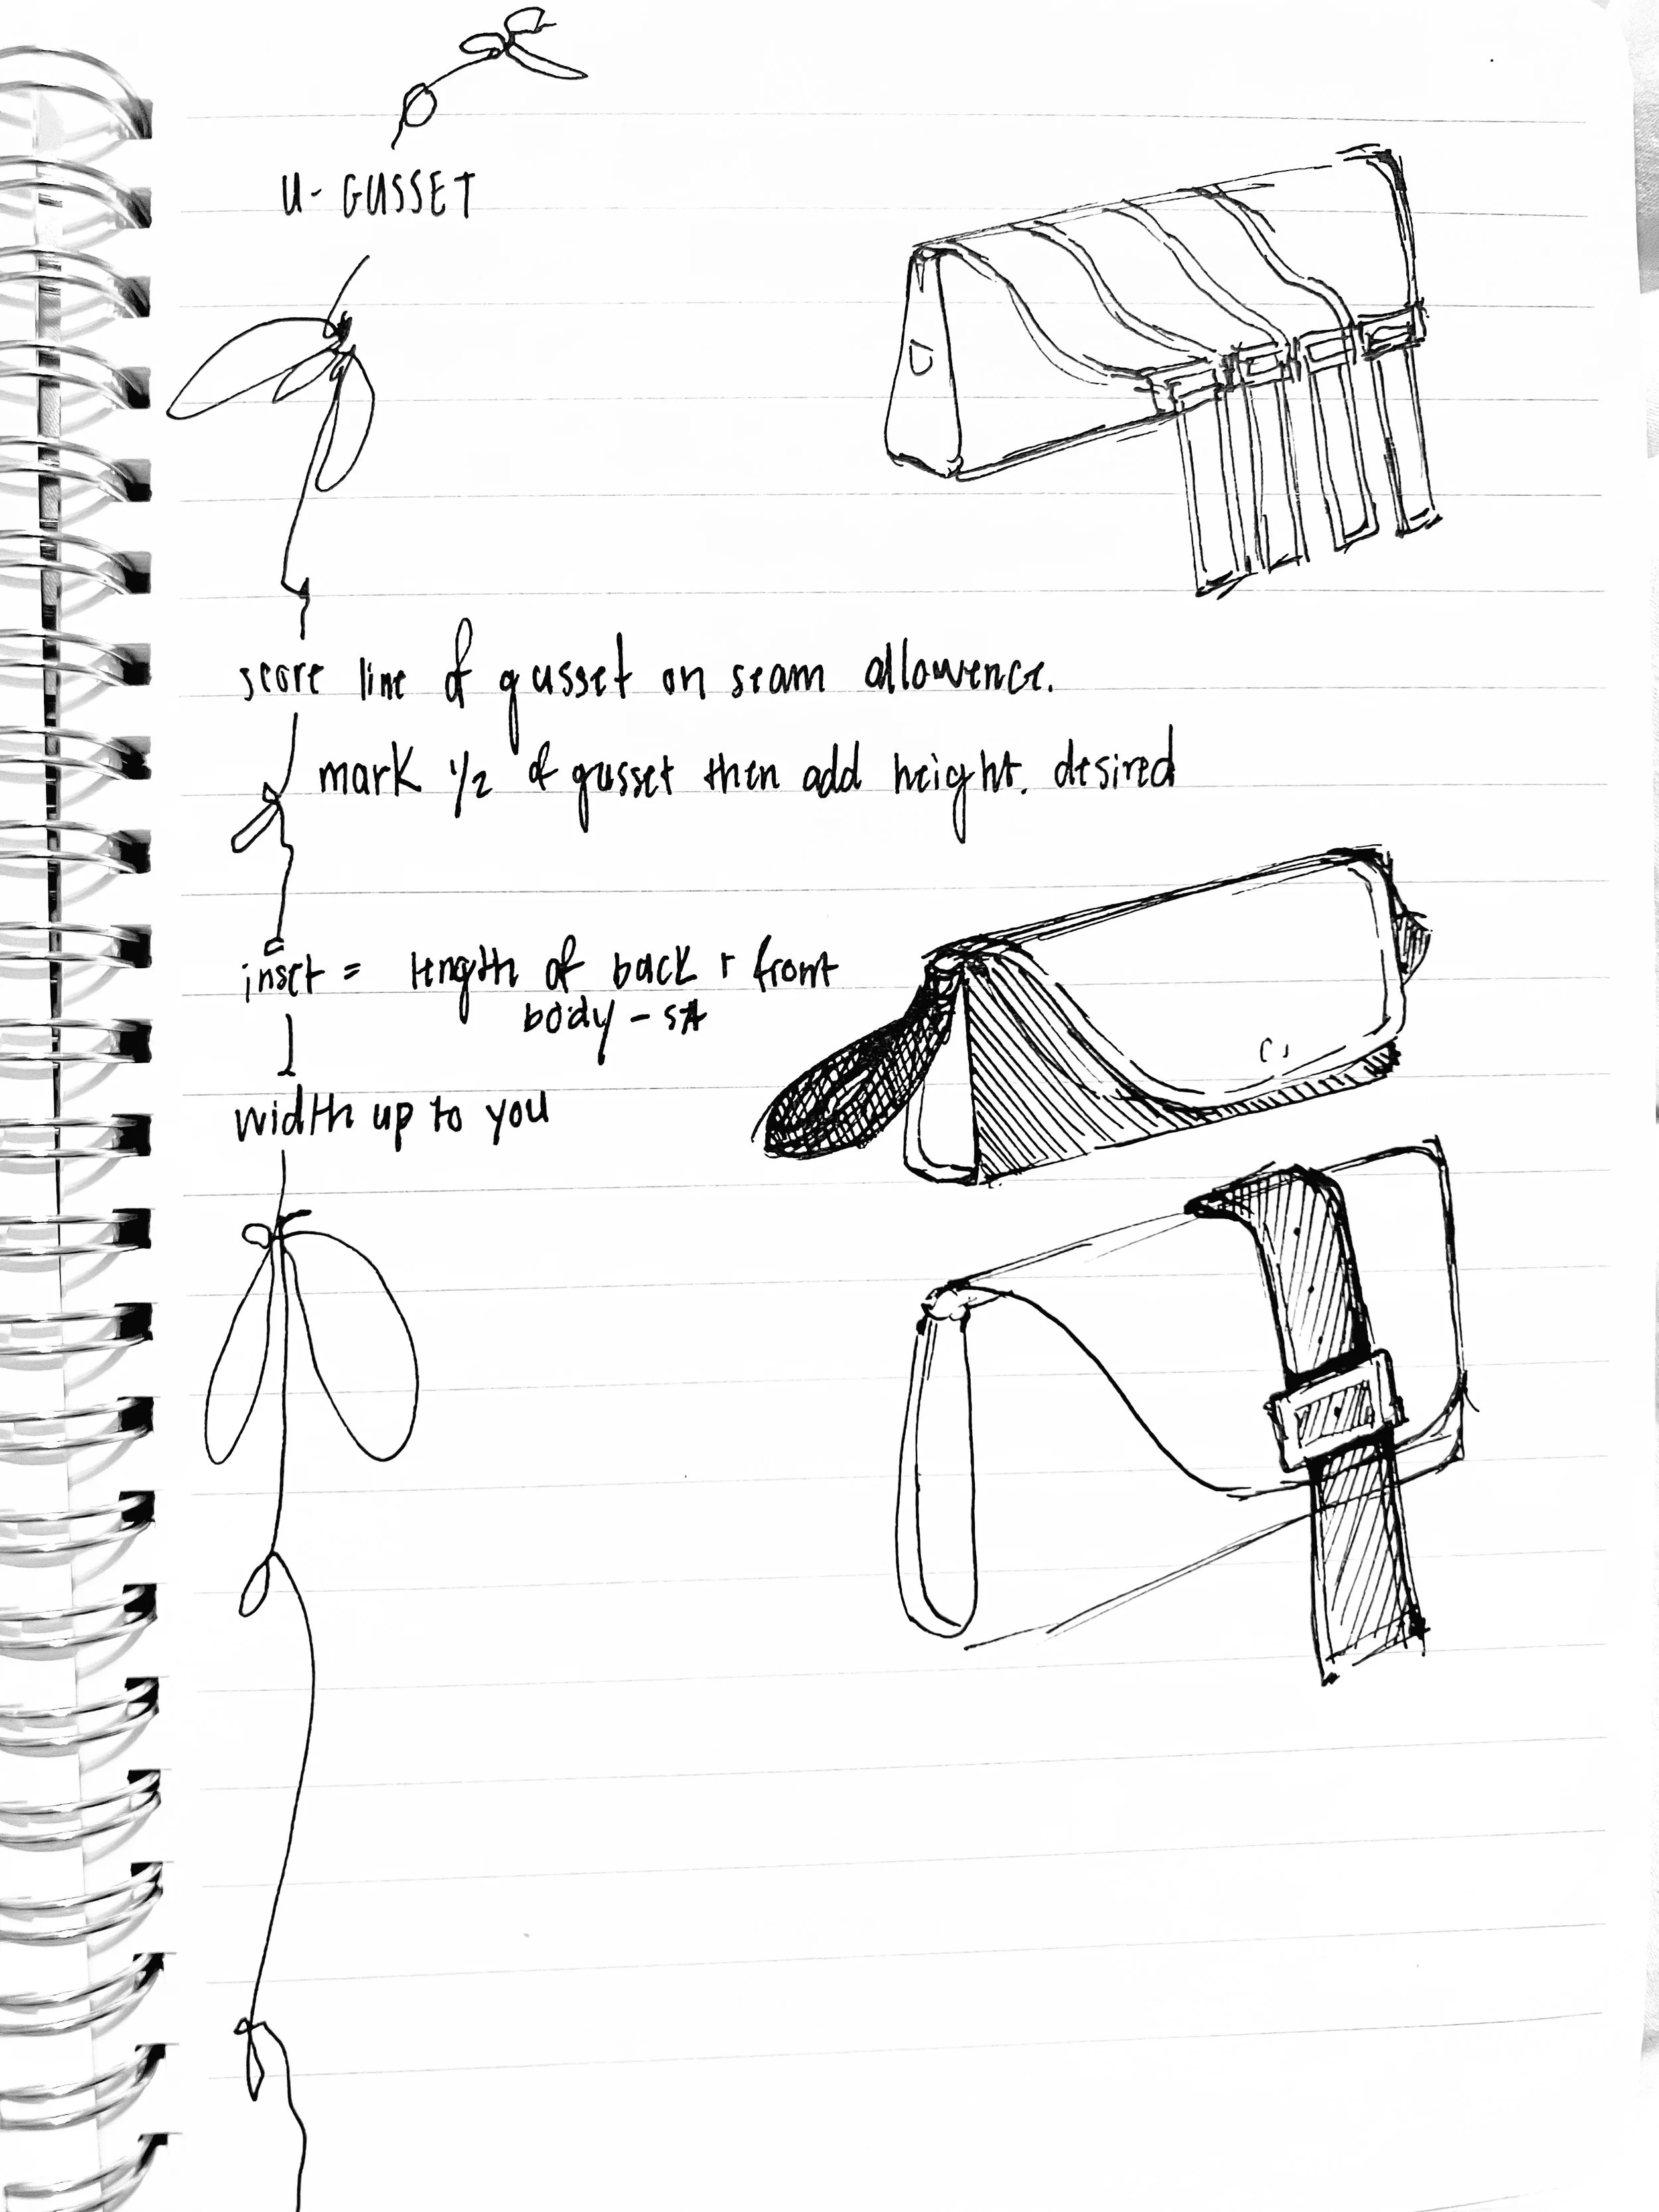 U- GUSSET
score line of gusset on seam allowence.
mark 1/2 of gusset then add height. desired
inset = length of back + front
body - SA
width up to you